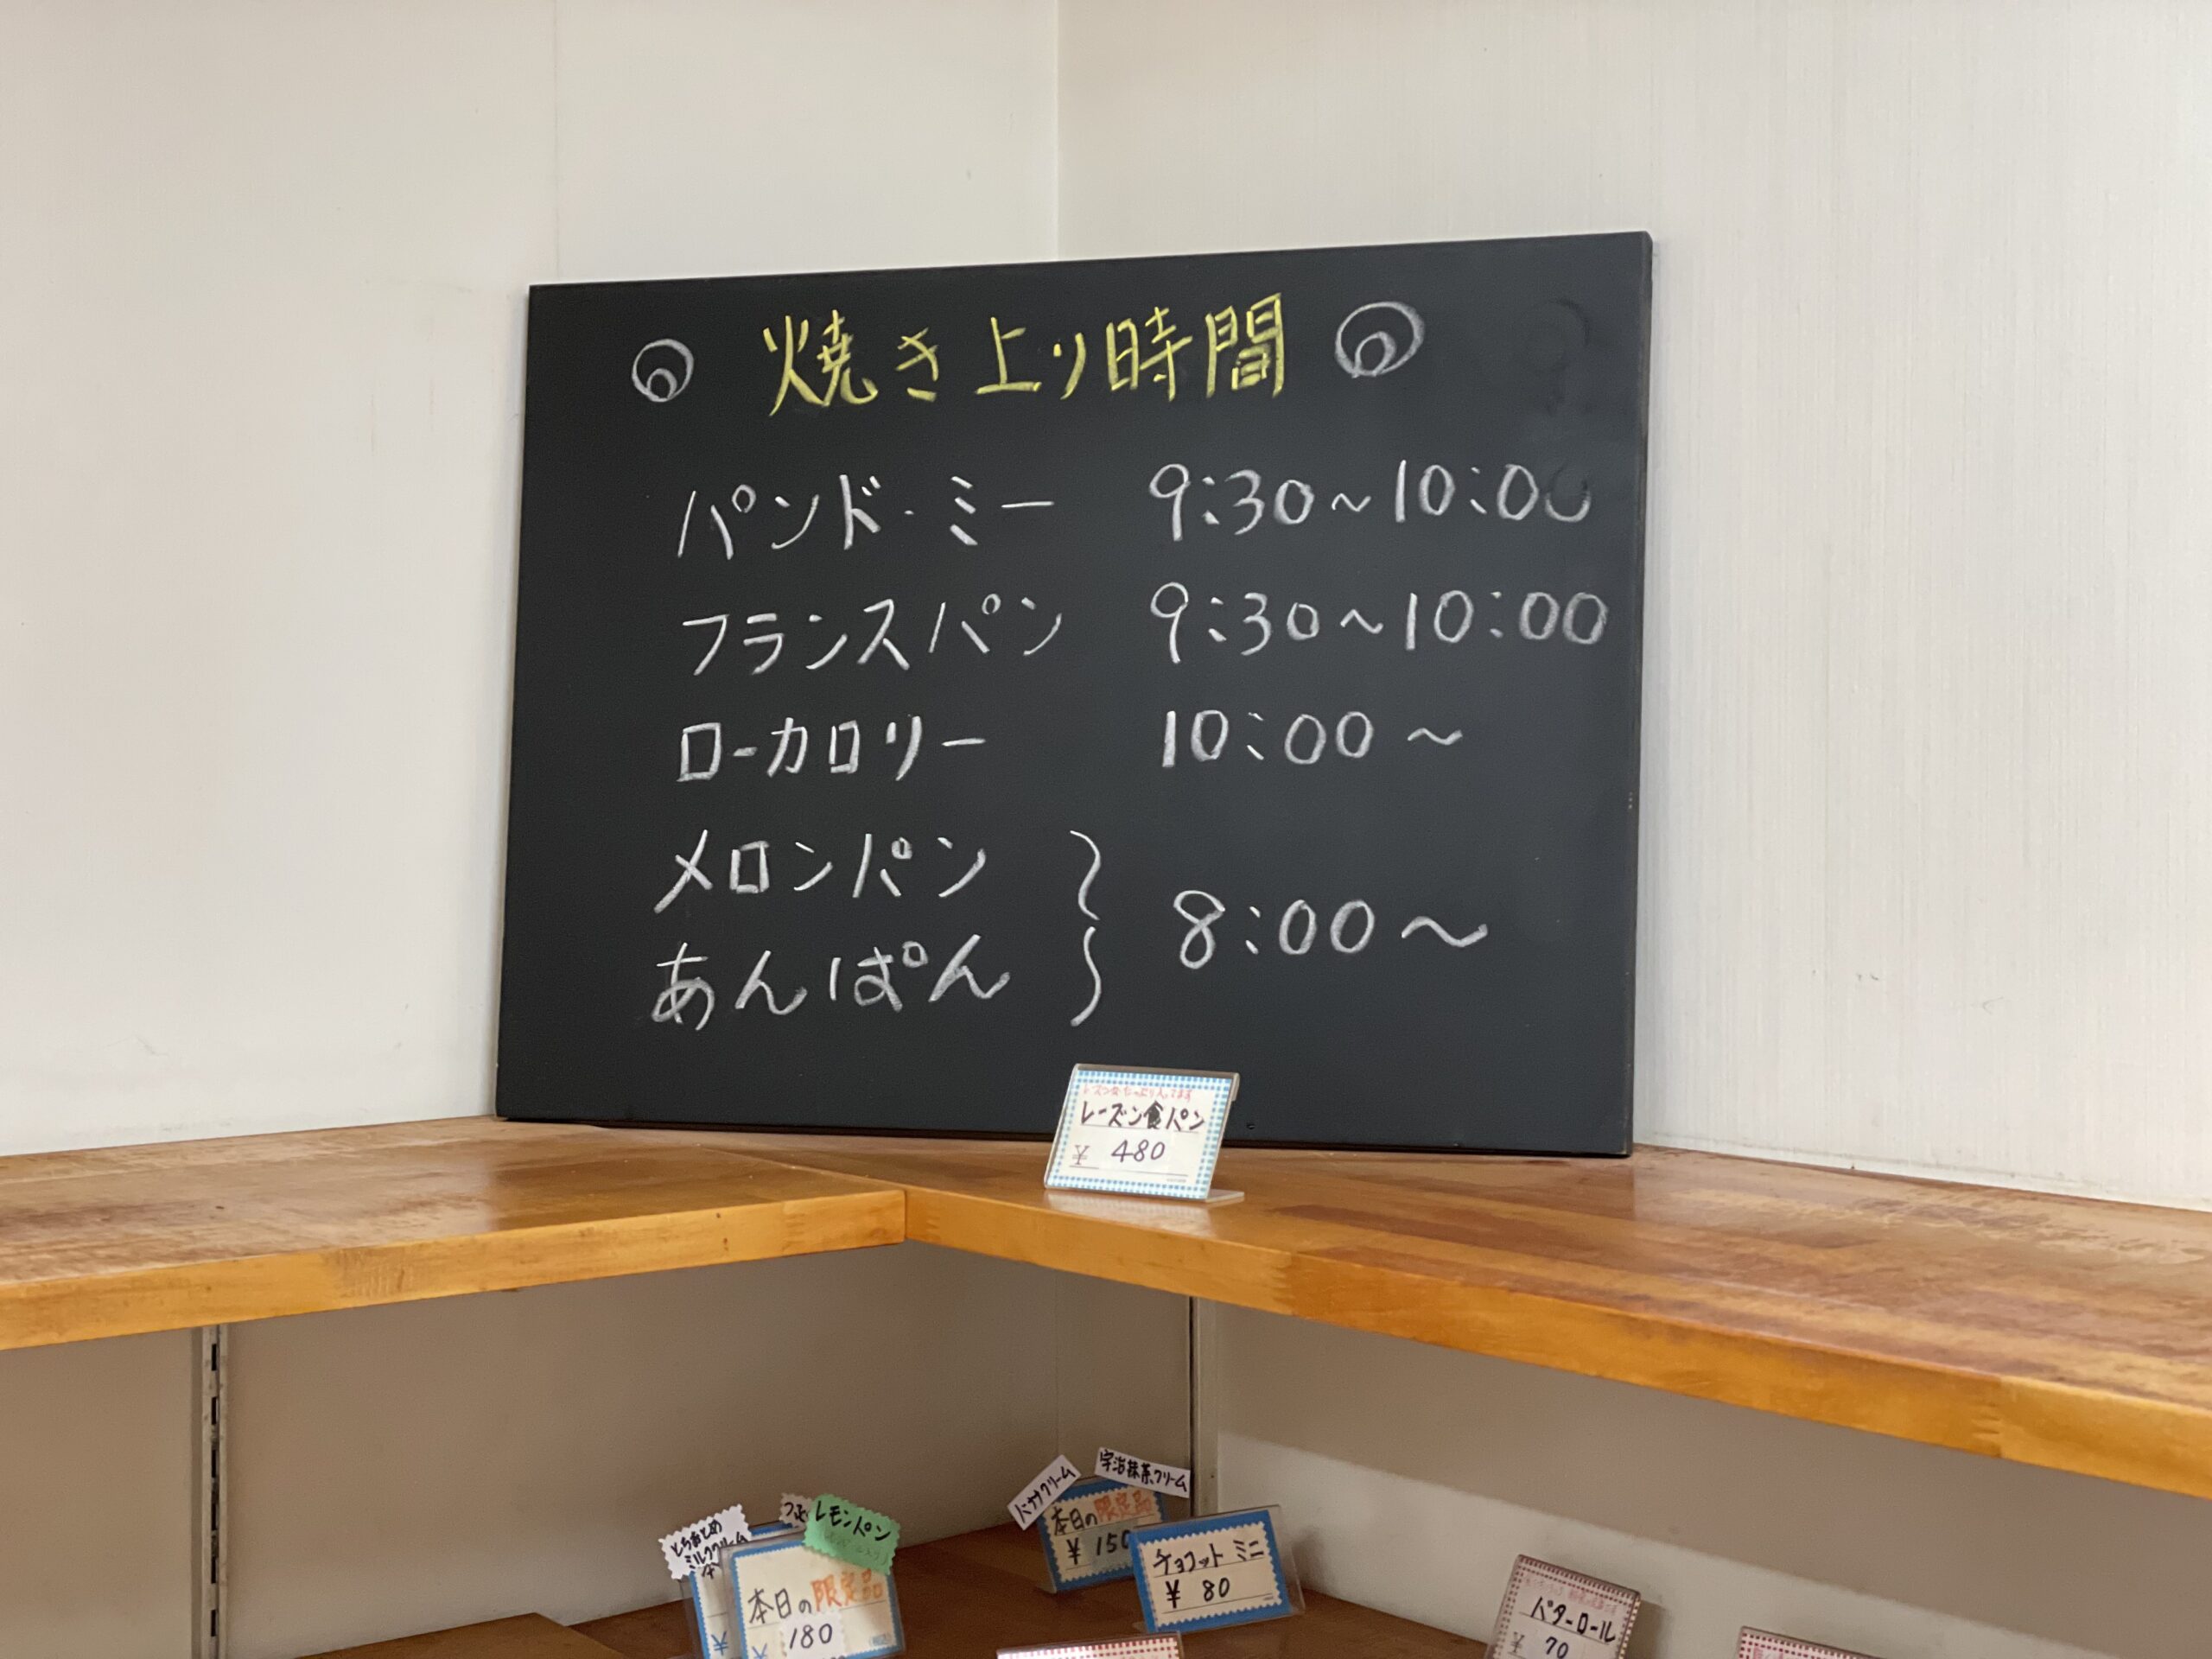 焼き上り時間
パンド・ミー 9:30~10:00
フランスパン 9:30~10:00
ローカロリー 10:00~
メロンパン
あんぱん
8:00~
レーズンがたっぷり入ってます
レーズン食パン
¥ 480
バナナクリーム
宇治抹茶クリーム
本日の限定品
¥ 150
チョコット ミニ
¥ 80
とちおとめ
ミルククリーム
¥
つぶ
レモンパン
本日の限定品
¥ 180
バターロール
¥ 70